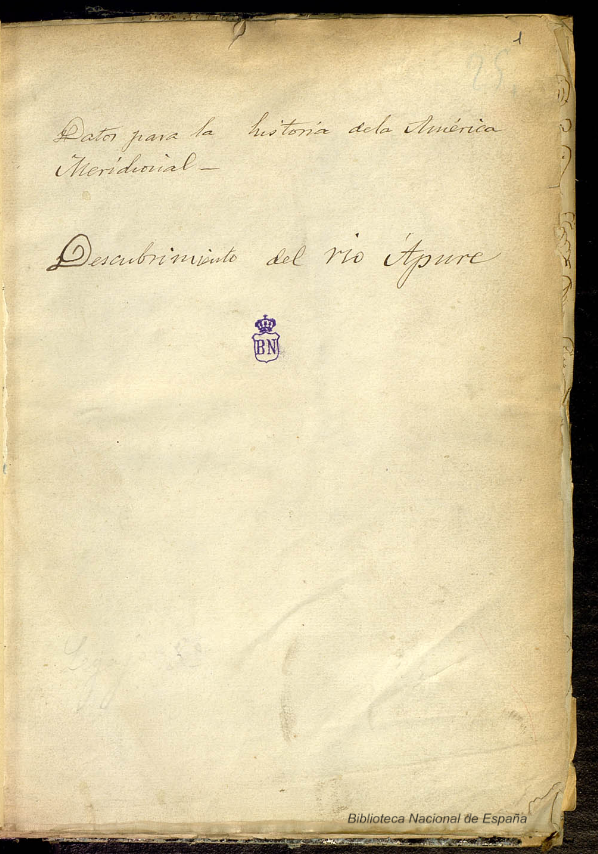 1
Datos para la historia dela América
Meridional –
Descubrimiento del rio Ápure
BN
Biblioteca Nacional de España